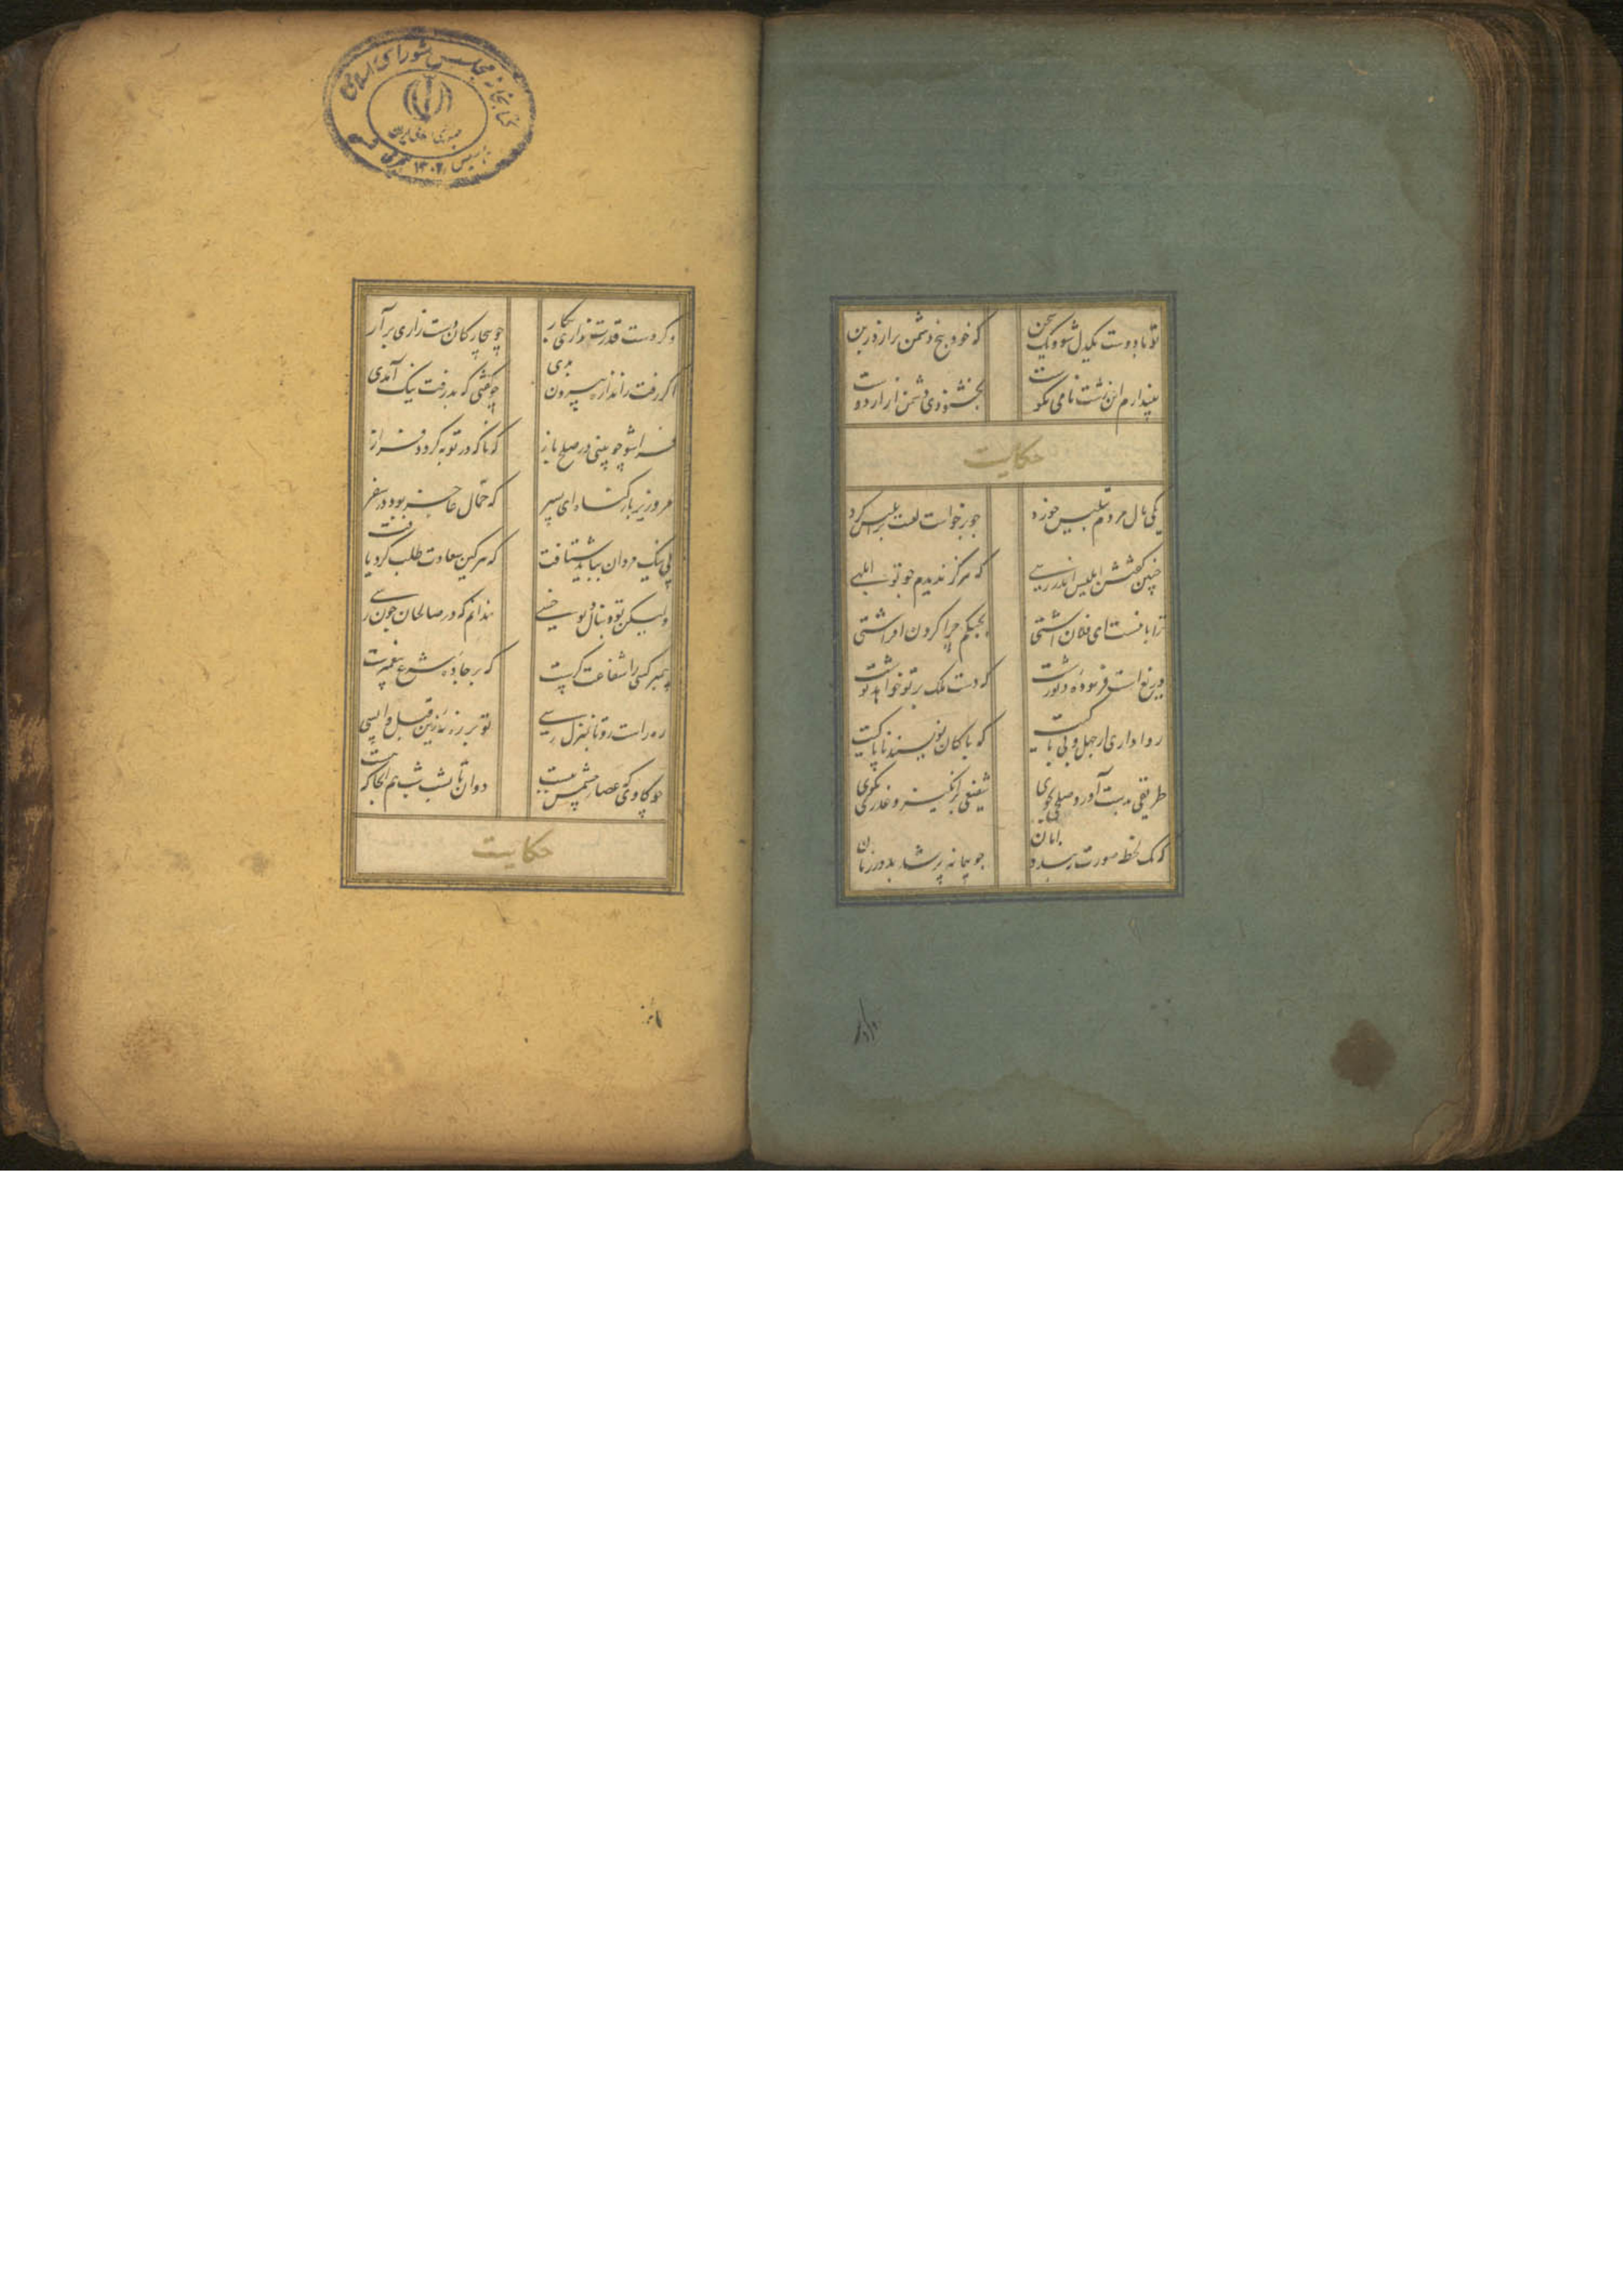 تو با دوست یکدل شو و یک سخن که خود بیخ دشمن برآرد ز بن
نپندارم این زشت نامی نکوست بخشنودی دشمن آزار دوست
حکایت
یکی مال مردم بتلبیس خورد چو برخواست لعنت بر ابلیس کرد
چنین گفتش ابلیس اندر رهی که هرگز ندیدم چو تو ابلهی
ترا با منست ای فلان آشتی بجنگم چرا گردن افراشتی
دریغ است فرموده دیو زشت که دست ملک بر تو خواهد نوشت
روا داری از جهل و بی باکیت که پاکان نویسند ناپاکیت
طریقی بدست آور و صلحی بجوی شفیعی برانگیز و عذری بگوی
که یک لحظه صورت نبندد امان چو پیمانه پر شد بدور زمان
وگر دست قدرت نداری بکار چو بیچارکان دست زاری برآر
اگر رفت از اندازه بیرون بدی چو گفتی که بد رفت نیک آمدی
فرا شو چو بینی در صلح باز که ناکه در توبه گردد فراز
مرو زیر بار گناه ای پسر که حمال عاجز بود در سفر
پی نیک مردان بباید شتافت که هر کین سعادت طلب کرد یافت
ولیکن تو دنبال دیو خسی ندانم که در صالحان چون رسی
پیمبر کسی را شفاعت گرست که بر جاده شرع پیغمبرست
ره راست رو تا بمنزل رسی تو بر ره نه زین قبل واپسی
چو گاوی که عصار چشمش ببست دوان تا بشب شب هم آنجا که هست
حکایت
کتابخانه مجلس شورای اسلامی
جمهوری اسلامی ایران
تأسیس ۱۳۰۲ هجری